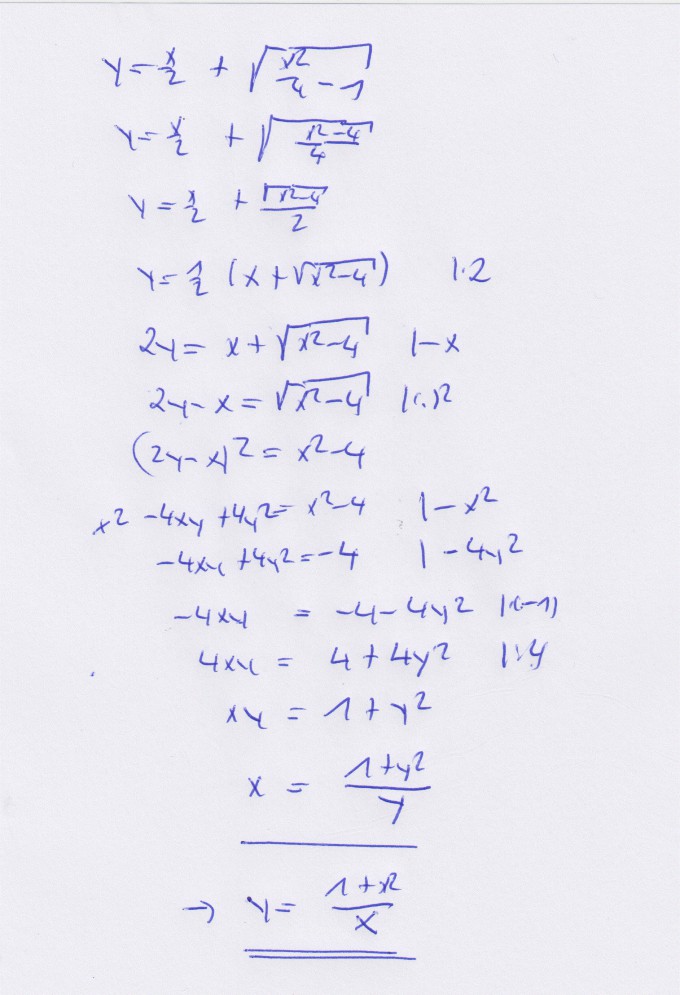 y = x/2 + √(x²/4 - 1)
y = x/2 + √((x²-4)/4)
y = x/2 + √(x²-4)/2
y = 1/2 (x + √(x²-4)) |·2
2y = x + √(x²-4) |-x
2y - x = √(x²-4) |(.)²
(2y-x)² = x²-4
x² -4xy +4y² = x²-4 |-x²
-4xy +4y² = -4 |-4y²
-4xy = -4-4y² |·(-1)
4xy = 4+4y² |:4
xy = 1+y²
x = (1+y²)/y
→ y = (1+x²)/x